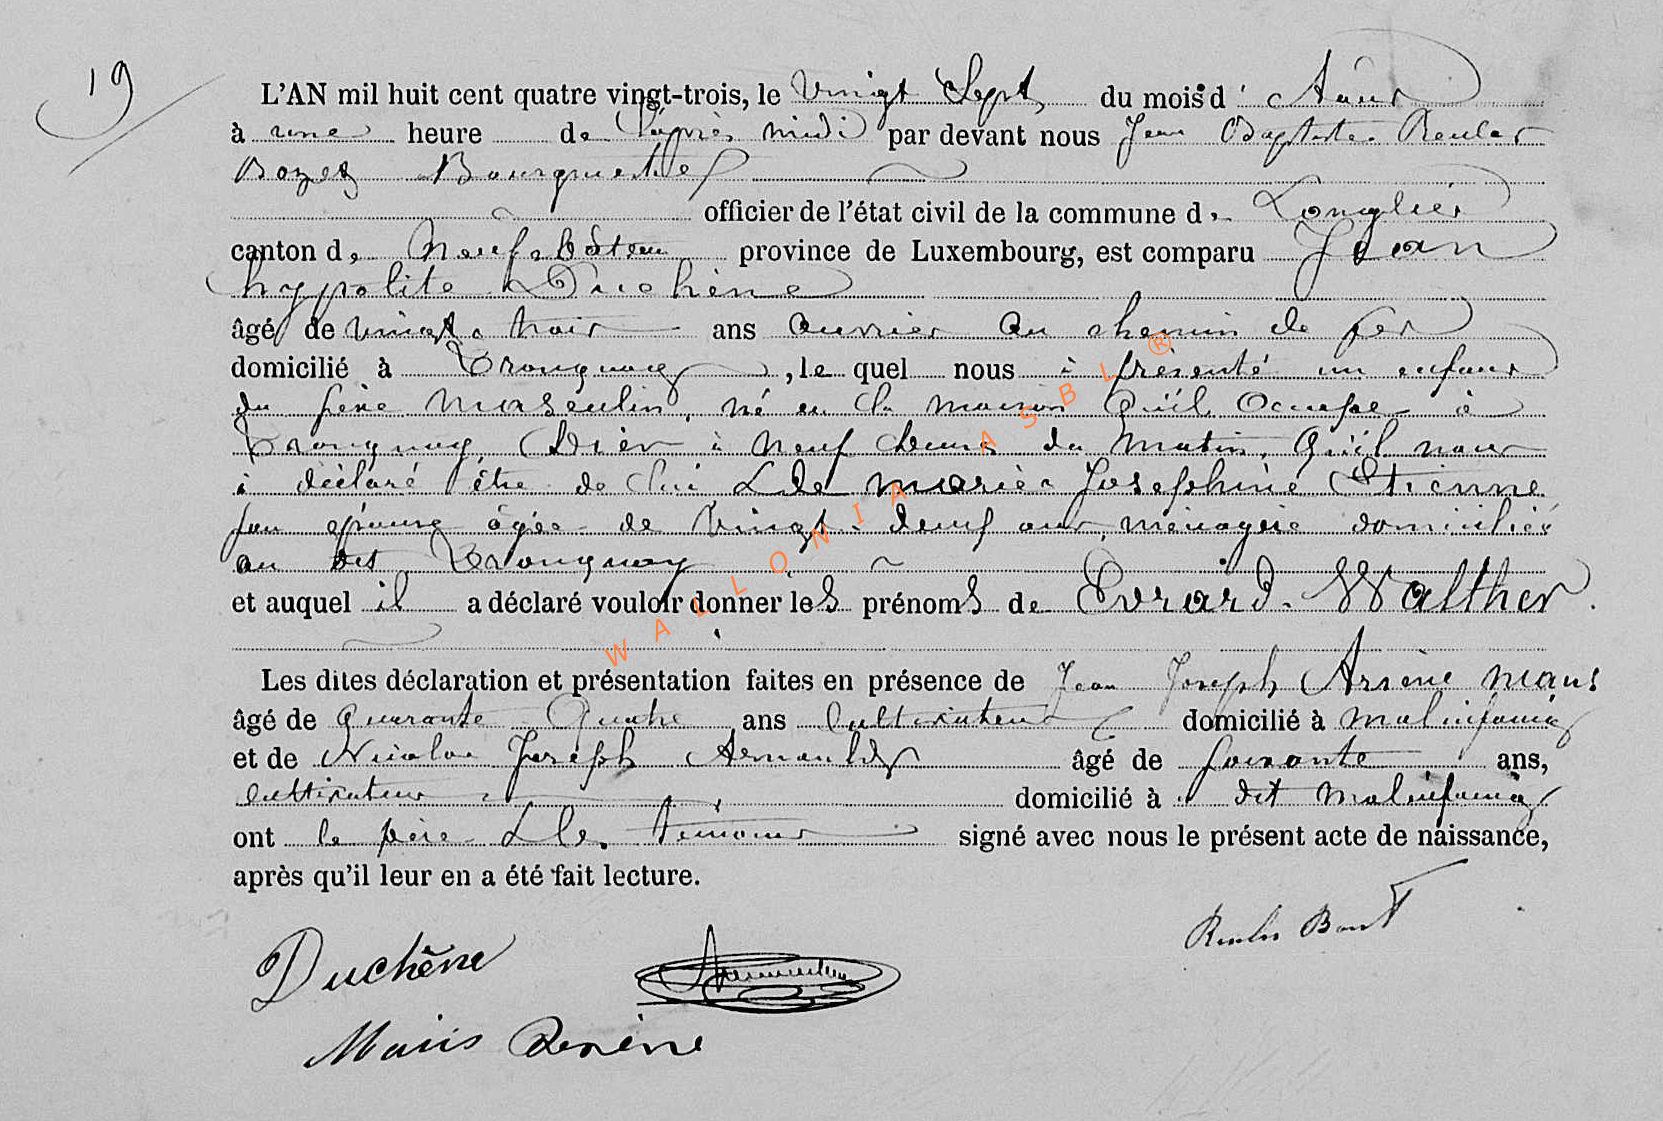 19
L'AN mil huit cent quatre vingt-trois, le vingt Sept du mois d' Août
à une heure de l'après midi par devant nous Jean Baptiste Reuler
Bozet Bourgmestre
officier de l'état civil de la commune de Longlier
canton de Neufchâteau province de Luxembourg, est comparu Jean
hypolite Duchène
âgé de vingt trois ans ouvrier au chemin de fer
domicilié à Tronquoy, le quel nous à présenté un enfant
du sèxe masculin, né en la maison qu'il occupe à
Tronquoy, hièr à neuf heures du matin, qu'il nous
à déclaré être de lui & de marie Joséphine Etienne
son épouse âgée de vingt deux ans, ménagère domiciliée
au dit Tronquoy
et auquel il a déclaré vouloir donner les prénoms de Evrard Walther.
Les dites déclaration et présentation faites en présence de Jean Joseph Arsène maus
âgé de quarante quatre ans cultivateur domicilié à malinfaing
et de Nicolas Joseph Arnould âgé de soixante ans,
cultivateur domicilié à dit malinfaing
ont le père & les témoins signé avec nous le présent acte de naissance,
après qu'il leur en a été fait lecture.
Duchêne
WALLONIA ASBL ®